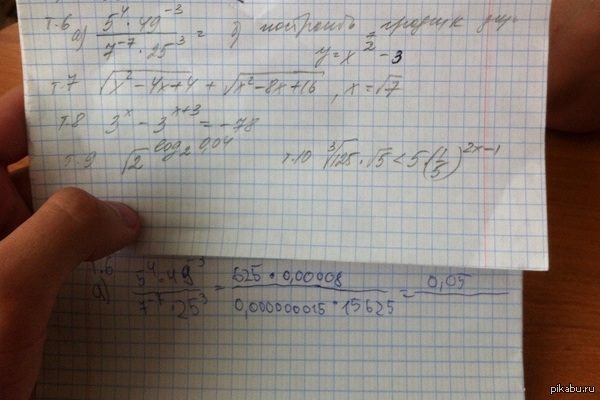 т.6
а) 5⁴·49⁻³ / 7⁻⁷·25³ = б) построить график
y = x² - 3
т.7 √x² - 4x + 4 + √x² - 8x + 16 , x = √7
т.8 3ˣ - 3ˣ⁺³ = -78
т.9 √2 log₂ 0,04 т.10 ³√125 · √5 < 5 (1/5)²ˣ⁻¹
т.6
а) 5⁴·49⁻³ / 7⁻⁷·25³ = 625·0,00008 / 0,000000015·15625 = 0,05
pikabu.ru